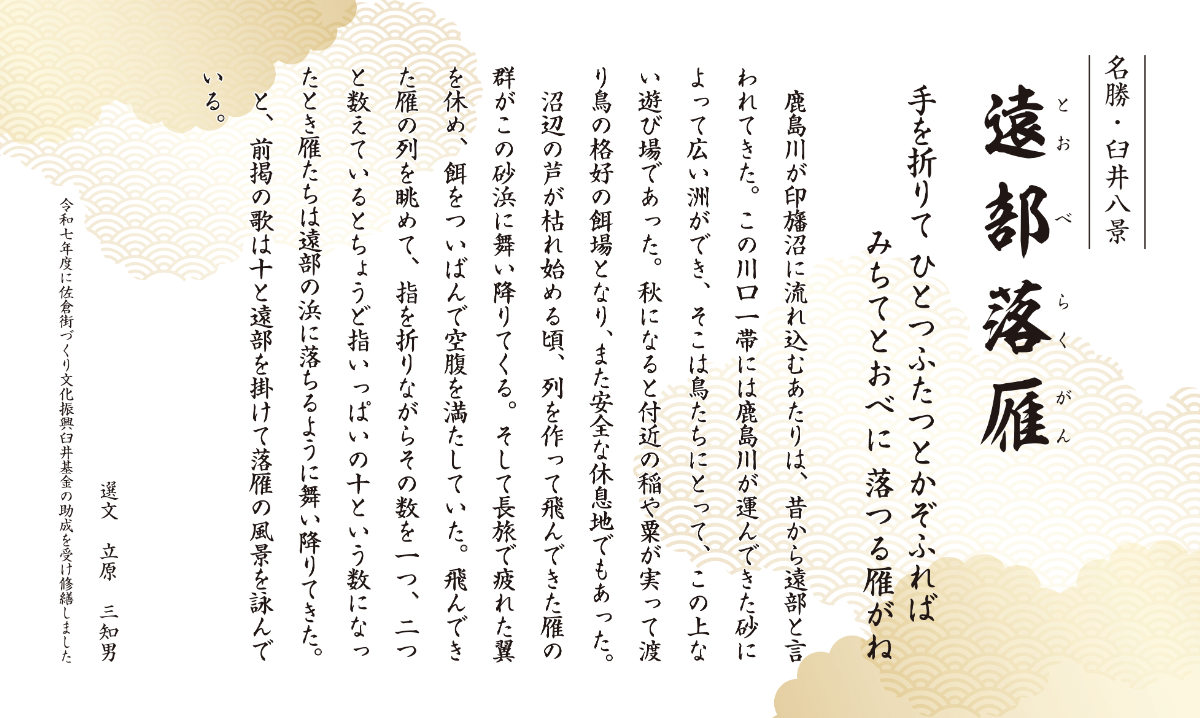 名勝・臼井八景
遠部落雁
とおべらくがん
手を折りて ひとつふたつとかぞふれば
みちてとおべに 落つる雁がね
鹿島川が印旛沼に流れ込むあたりは、昔から遠部と言
われてきた。この川口一帯には鹿島川が運んできた砂に
よって広い洲ができ、そこは鳥たちにとって、この上な
い遊び場であった。秋になると付近の稲や粟が実って渡
り鳥の格好の餌場となり、また安全な休息地でもあった。
沼辺の芦が枯れ始める頃、列を作って飛んできた雁の
群がこの砂浜に舞い降りてくる。そして長旅で疲れた翼
を休め、餌をついばんで空腹を満たしていた。飛んでき
た雁の列を眺めて、指を折りながらその数を一つ、二つ
と数えているとちょうど指いっぱいの十という数になっ
たとき雁たちは遠部の浜に落ちるように舞い降りてきた。
と、前掲の歌は十と遠部を掛けて落雁の風景を詠んで
いる。
選文 立原 三知男
令和七年度に佐倉街づくり文化振興臼井基金の助成を受け修繕しました